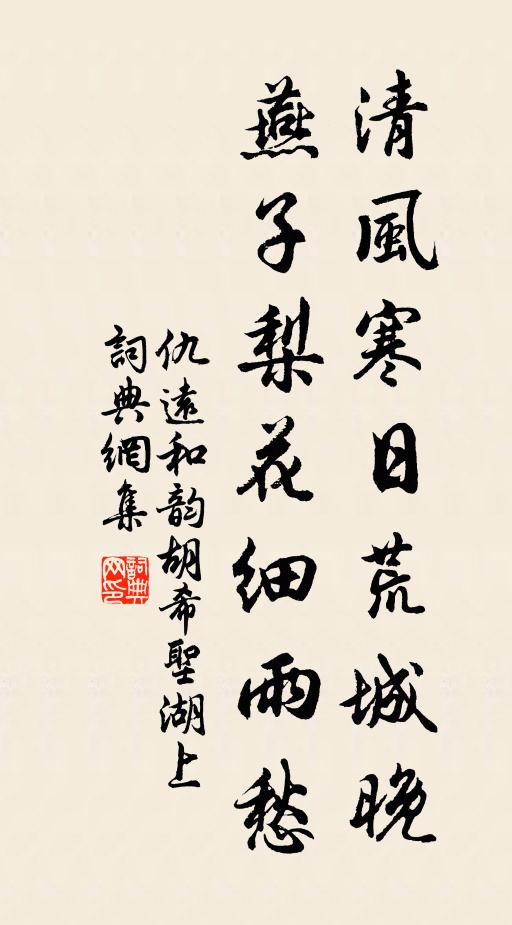 清風寒日荒城晚
燕子梨花細雨愁
仇遠和韵胡希聖湖上
詞典網集
詞典网印